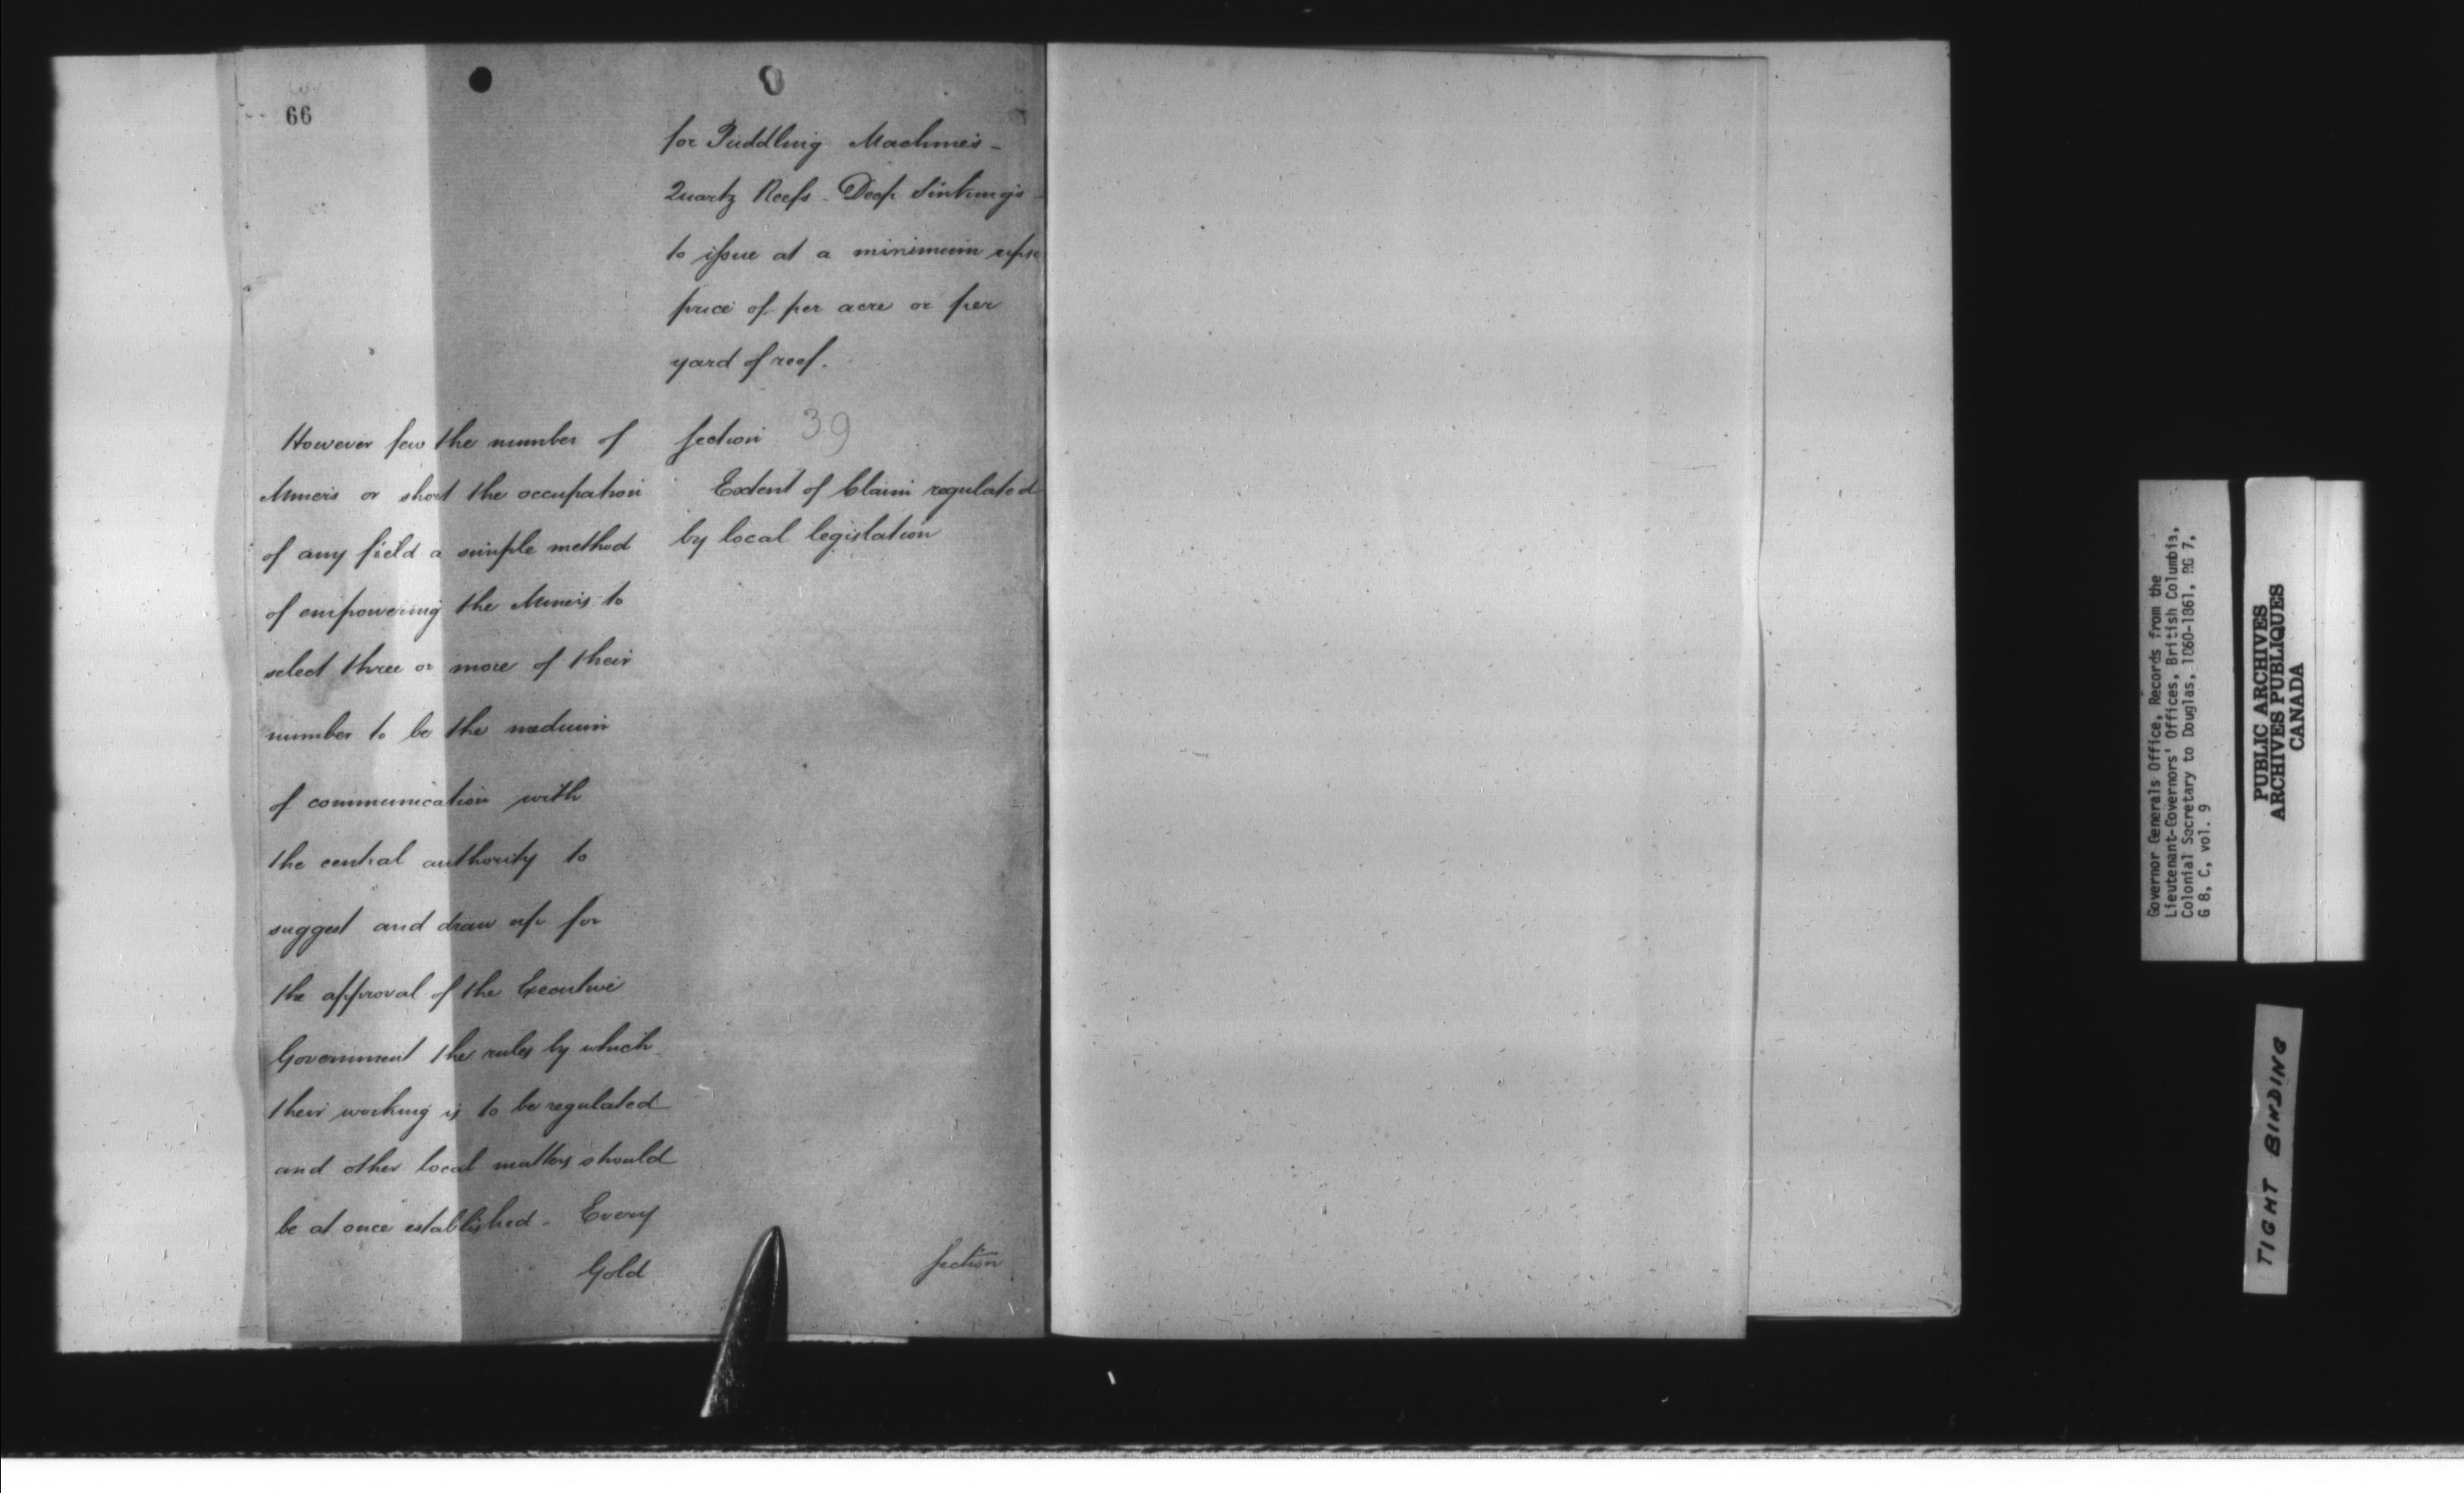 66
for Puddling Machines -
Quartz Reefs - Deep Sinkings -
to issue at a minimum upse
price of per acre or per
yard of reef.
Section 39
Extent of Claim regulated
by local legislation
Section
However few the number of
Miners or short the occupation
of any field a simple method
of empowering the Miners to
select three or more of their
number to be the medium
of communication with
the central authority to
suggest and draw up for
the approval of the Executive
Government the rules by which
their working is to be regulated
and other local matters should
be at once established - Every
Gold
Governor Generals Office, Records from the
Lieutenant-Governors' Offices, British Columbia,
Colonial Secretary to Douglas, 1860-1861, RG 7,
G 8, C, vol. 9
PUBLIC ARCHIVES
ARCHIVES PUBLIQUES
CANADA
TIGHT BINDING